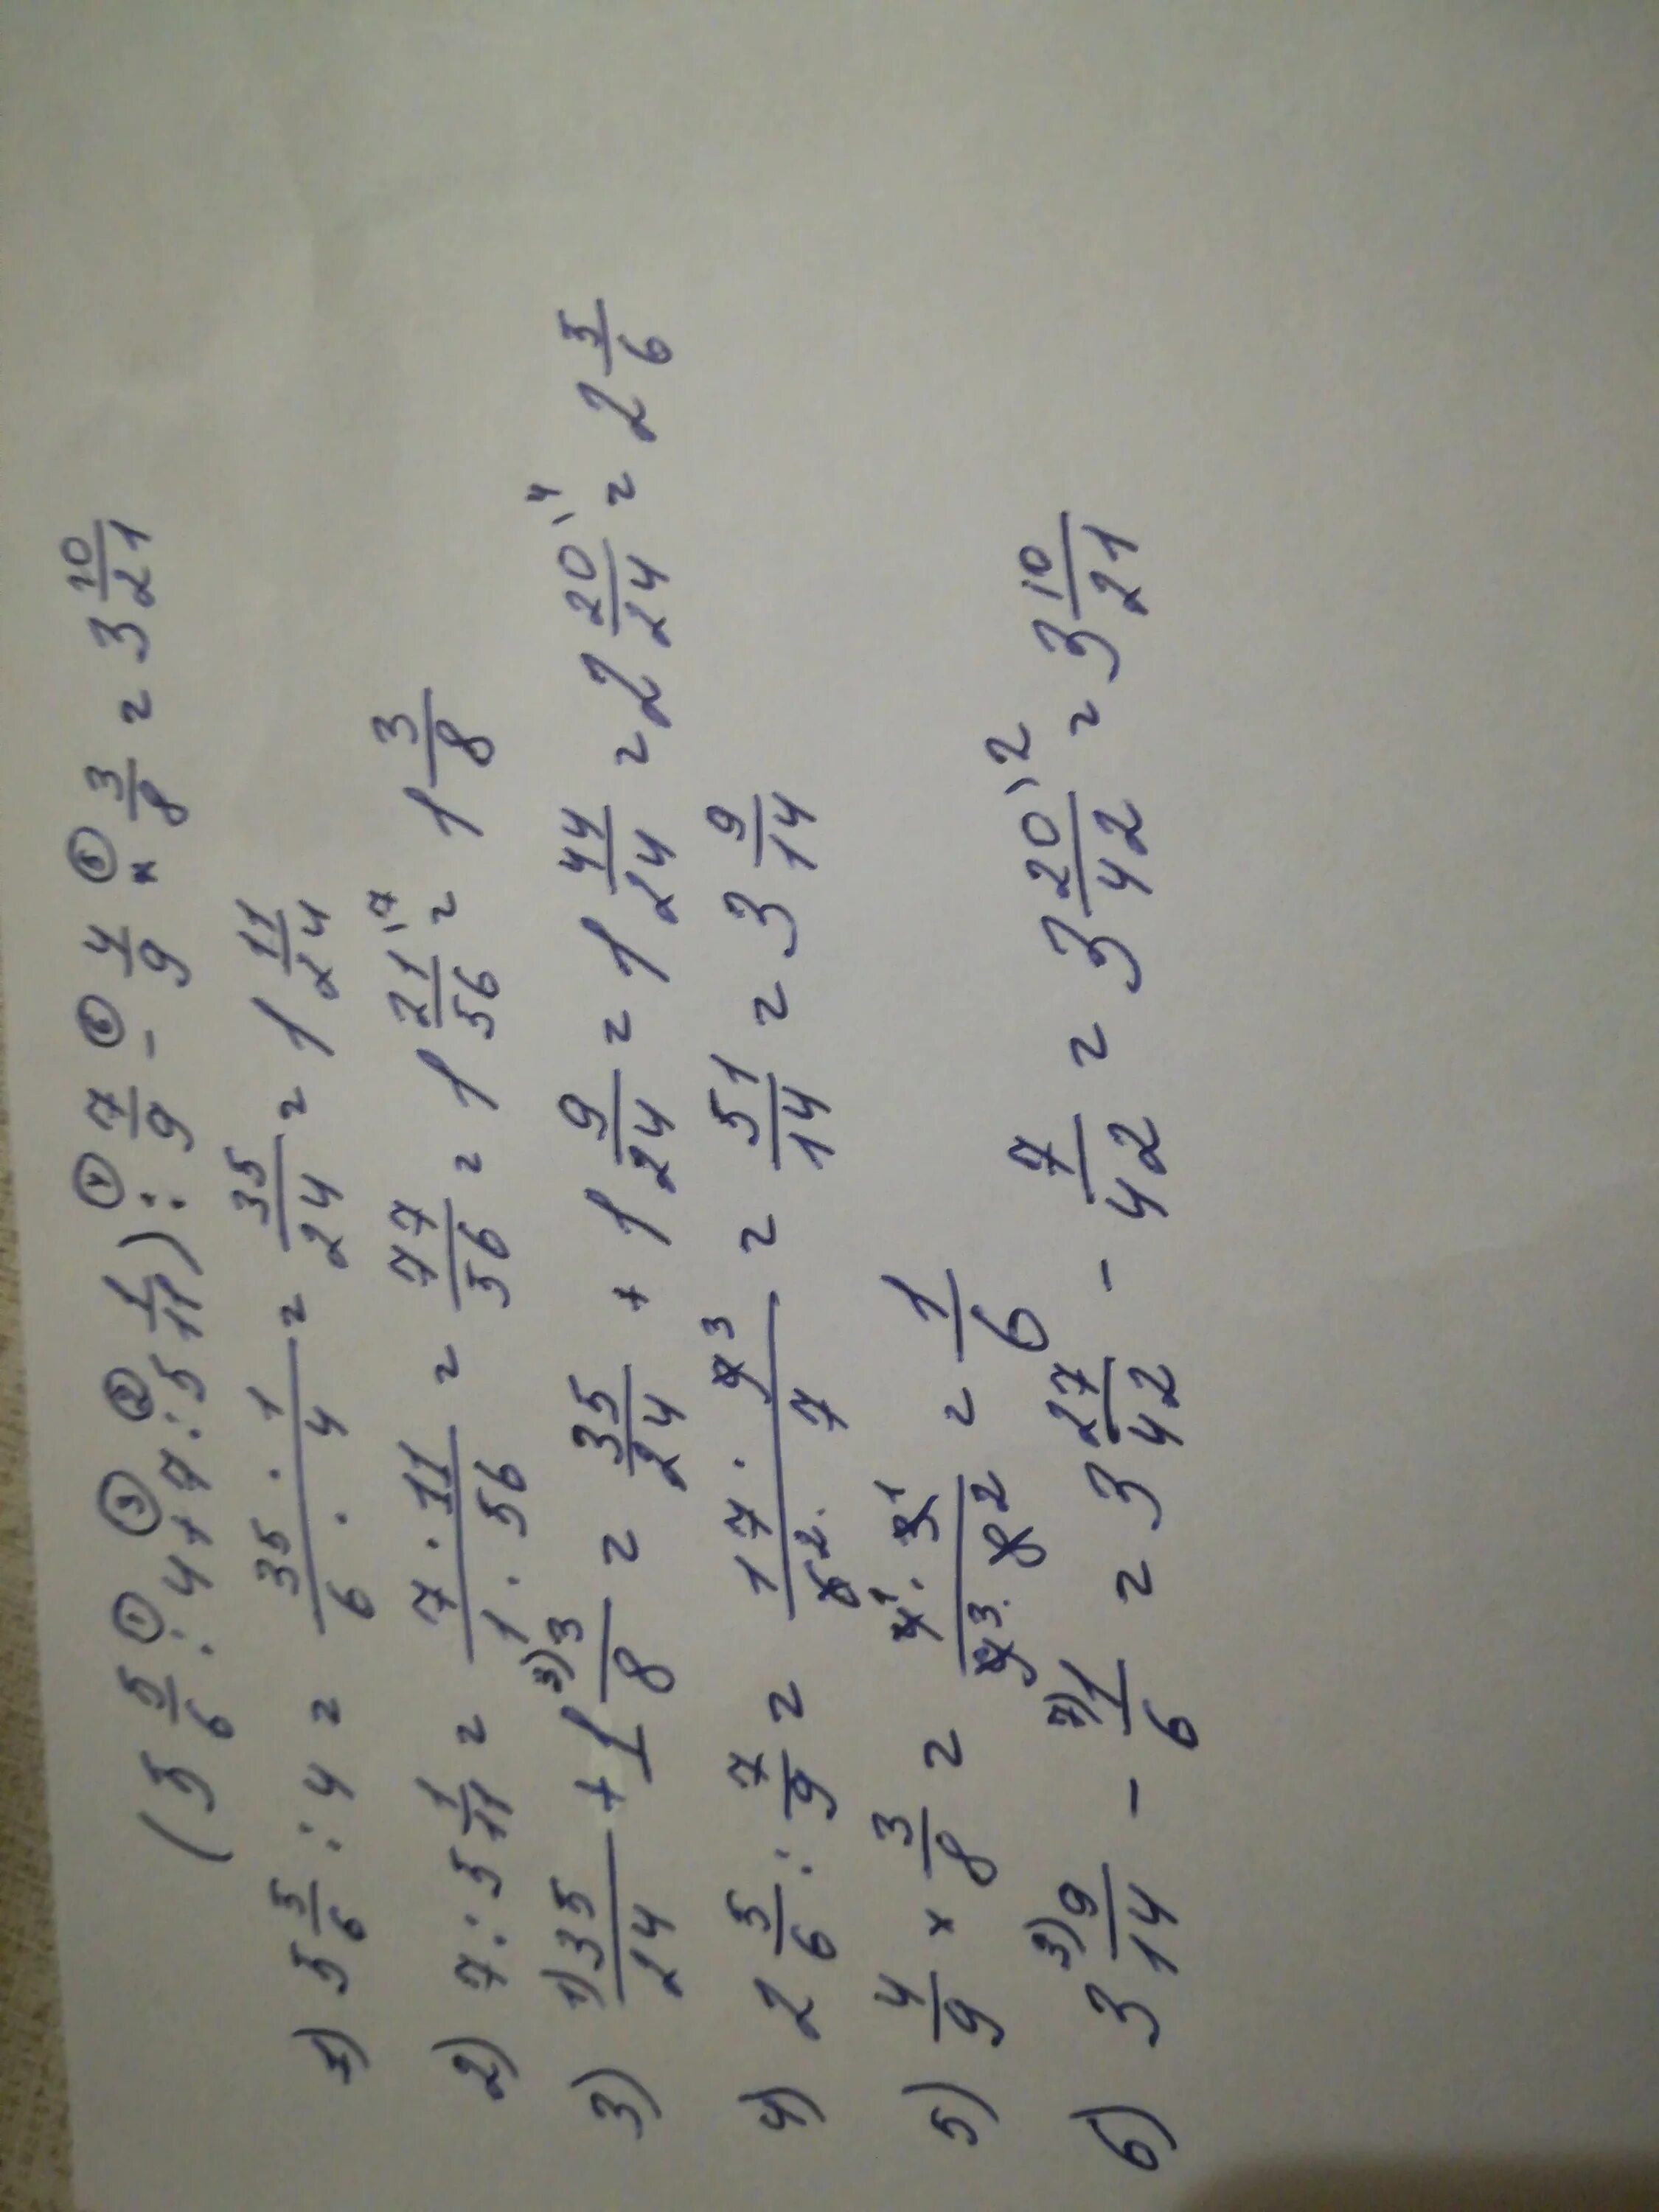 (5 5/6 ①: 4 ③+ 7 ②: 5 1/11) ④: 7/9 ⑥- 4/9 ⑤× 3/8 = 3 10/21
1) 5 5/6 : 4 = 35 · 1 / 6 · 4 = 35/24 = 1 11/24
2) 7 : 5 1/11 = 7 · 11 / 1 · 56 = 77/56 = 1 21/56 \7 = 1 3/8
3) 1) 35/24 + 1 3) 3/8 = 35/24 + 1 9/24 = 1 44/24 = 2 20/24 \4 = 2 5/6
4) 2 5/6 : 7/9 = 17 · 9 3 / 6 2 · 7 = 51/14 = 3 9/14
5) 4/9 × 3/8 = 4 1 · 3 1 / 9 3 · 8 2 = 1/6
6) 3 3) 9/14 - 7) 1/6 = 3 27/42 - 7/42 = 3 20/42 \2 = 3 10/21